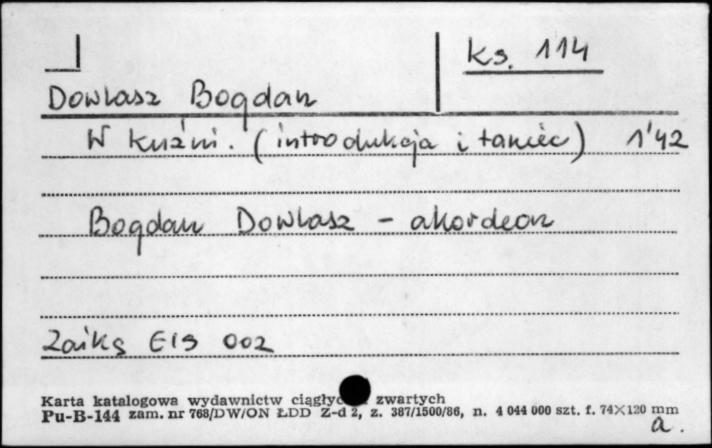 ks. 114
Dowlasz Bogdan
W kuźni. (introdukcja i taniec) 1'42
Bogdan Dowlasz - akordeon
Zaiks EIS 002
Karta katalogowa wydawnictw ciągłyc zwartych
Pu-B-144 zam. nr 768/DW/ON ŁDD Z-d 2, z. 387/1500/86, n. 4 044 000 szt. f. 74×120 mm
a.